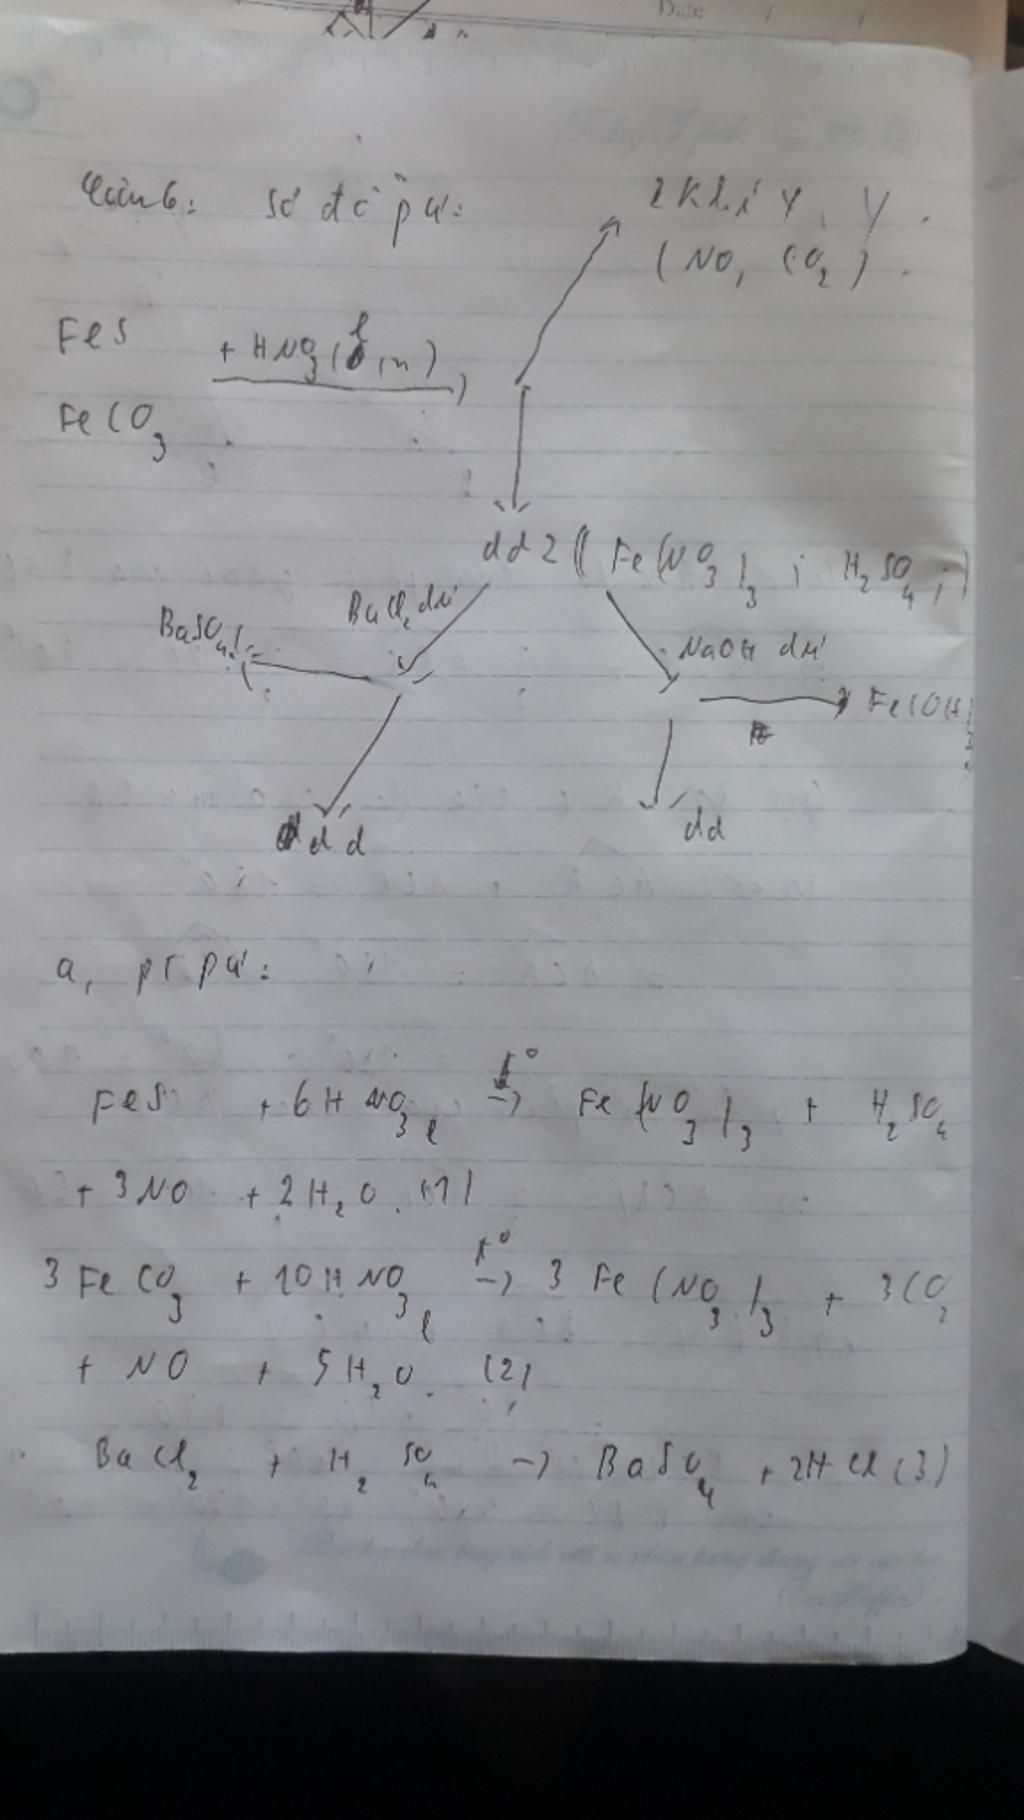 Date / /
Today I feel:
Câu 6: sơ đồ pư:
2 khí X, Y.
(NO, CO2).
FeS + HNO3 (l, n)
FeCO3
dd Z ( Fe(NO3)3 ; H2SO4 ; )
BaCl2 dư
BaSO4
NaOH dư
Fe(OH)3
dd
dd
a, pt pư:
FeS + 6HNO3 l t° → Fe(NO3)3 + H2SO4
+ 3NO + 2H2O. (1)
3FeCO3 + 10HNO3 l t° → 3Fe(NO3)3 + 3CO2
+ NO + 5H2O. (2)
BaCl2 + H2SO4 → BaSO4 + 2HCl (3)